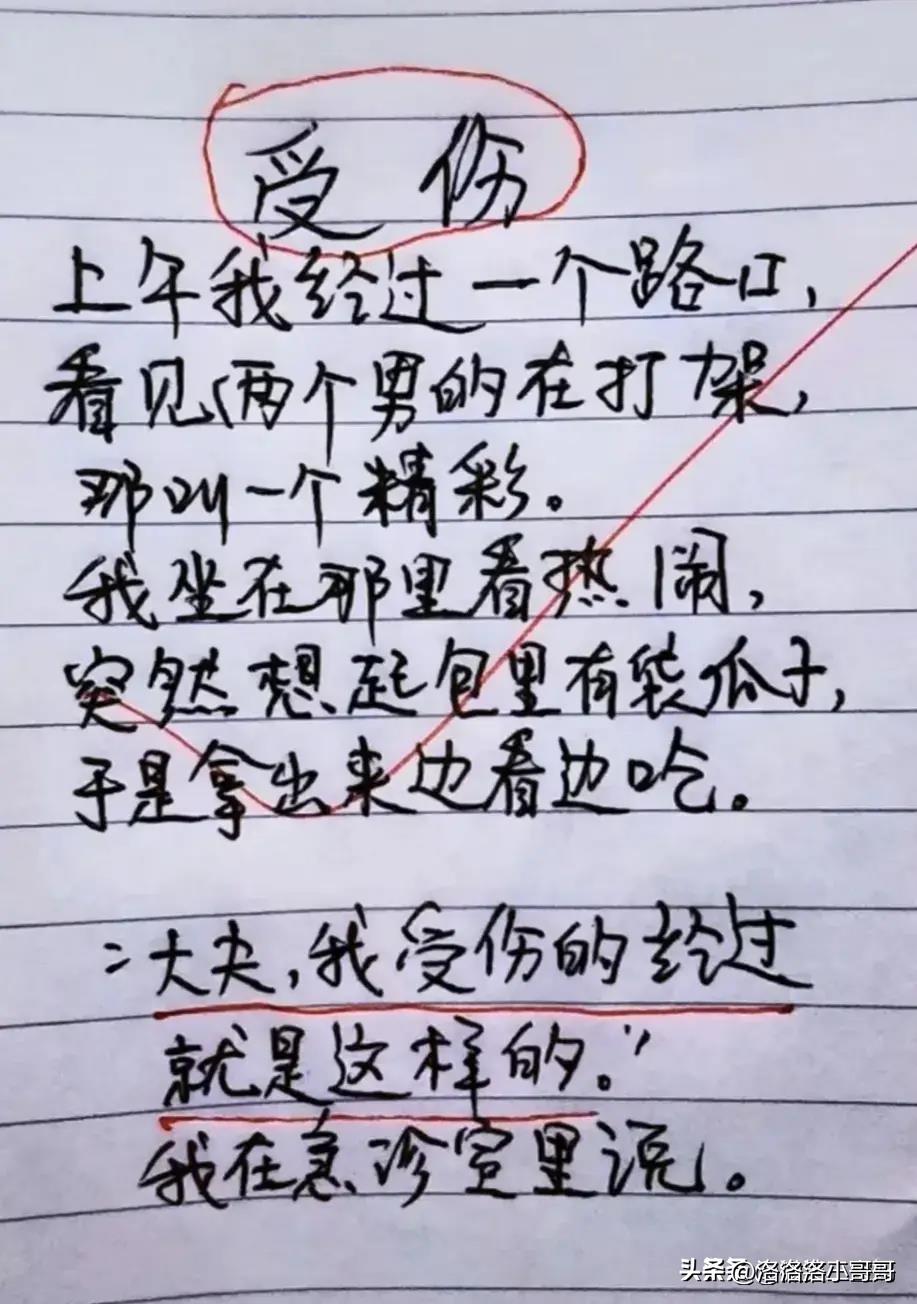 受伤
上午我经过一个路口,
看见两个男的在打架,
那叫一个精彩。
我坐在那里看热闹,
突然想起包里有袋瓜子,
于是拿出来边看边吃。
:大夫,我受伤的经过
就是这样的。"
我在急诊室里说。
头条 @洛洛洛小哥哥